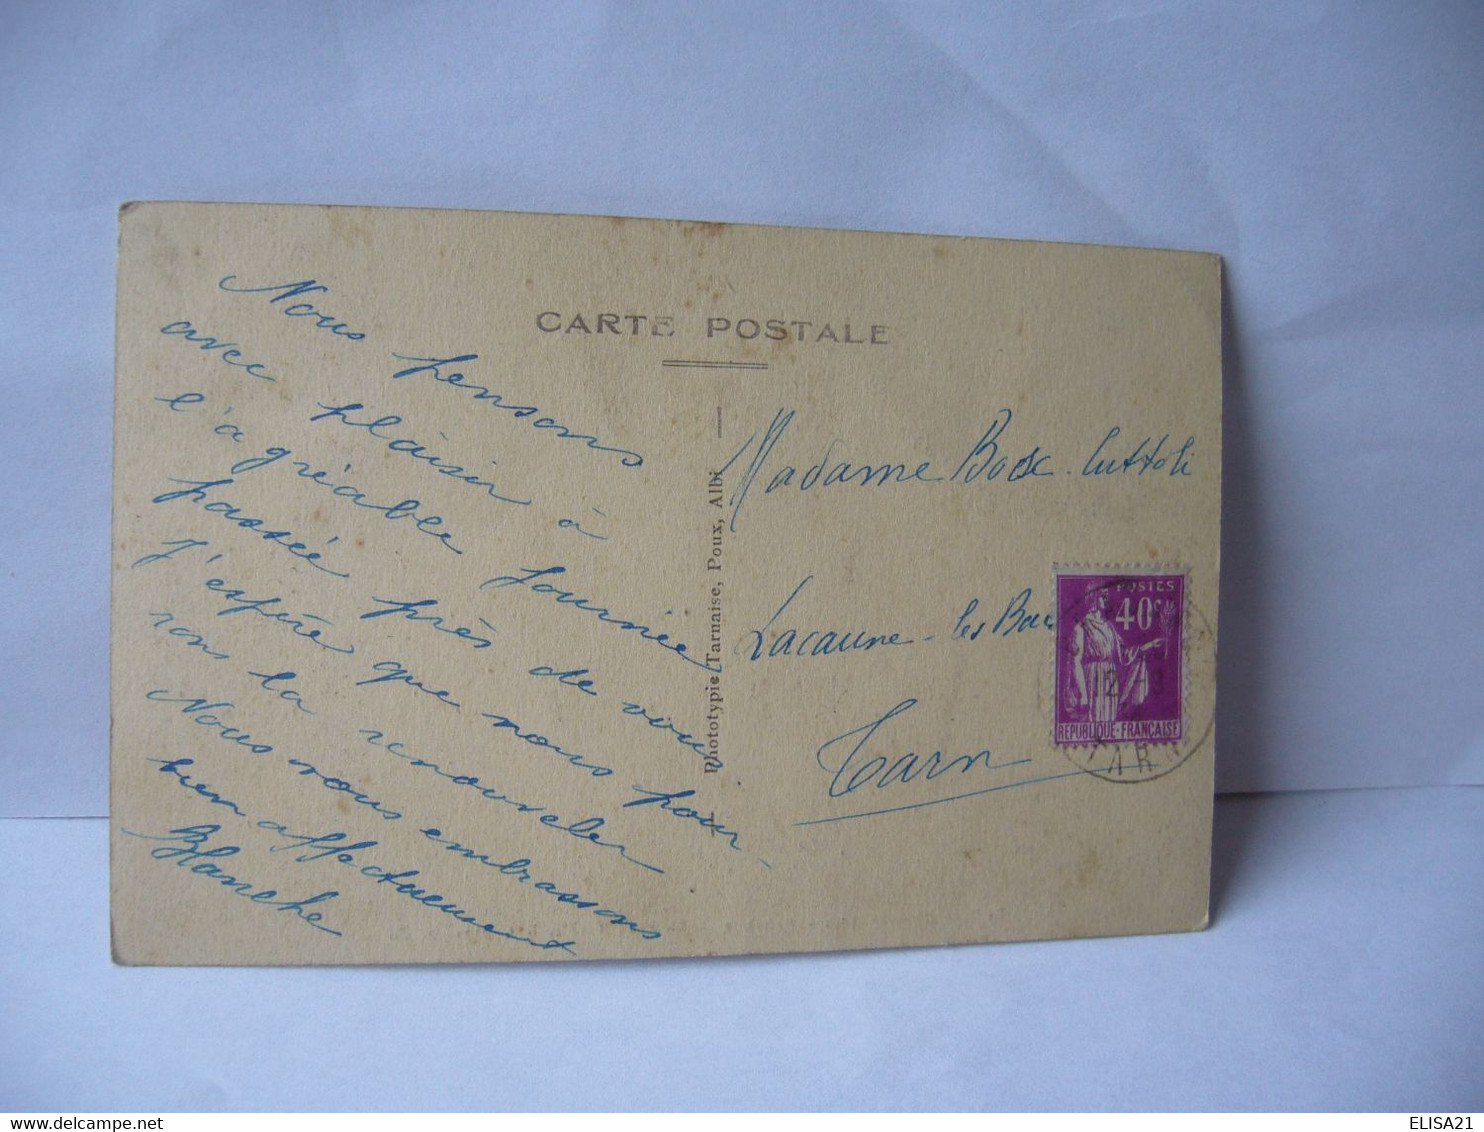 CARTE POSTALE
Nous pensons
avec plaisir à
l'agréable journée
passée près de vous
J'espère que nous pour-
rons la renouveler
Nous vous embrassons
bien affectueusement
Blanche
Phototypie Tarnaise, Poux, Albi
Madame Bosc-Cuttoli
Lacaune-les-Bai
Tarn
POSTES
40c
REPUBLIQUE-FRANÇAISE
TARN
ELISA21